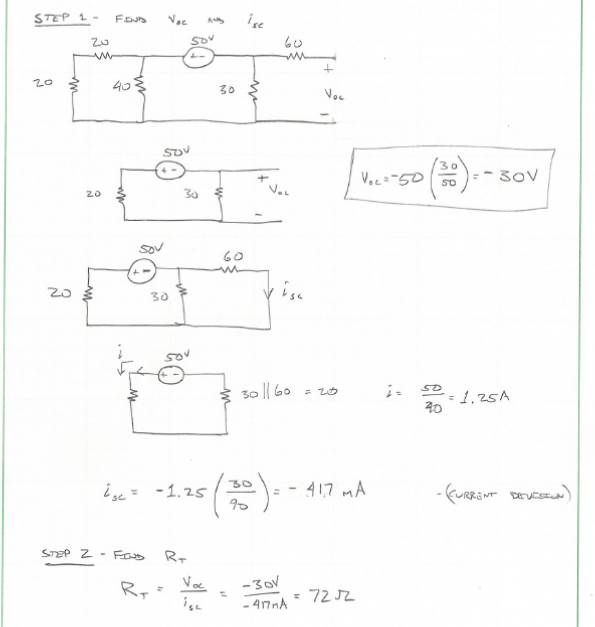 STEP 1 - FIND Voc AND isc
20 50V 60
20 40 30 + Voc -
+ -
50V
+ -
20 30 + Voc -
Voc = -50 (30/50) = -30V
50V 60
+ -
20 30 isc
i 50V
+ -
30 || 60 = 20 i = 50/40 = 1.25A
isc = -1.25 (30/90) = -417 mA - (CURRENT DIVISION)
STEP 2 - FIND RT
RT = Voc/isc = -30V/-417mA = 72 Ω